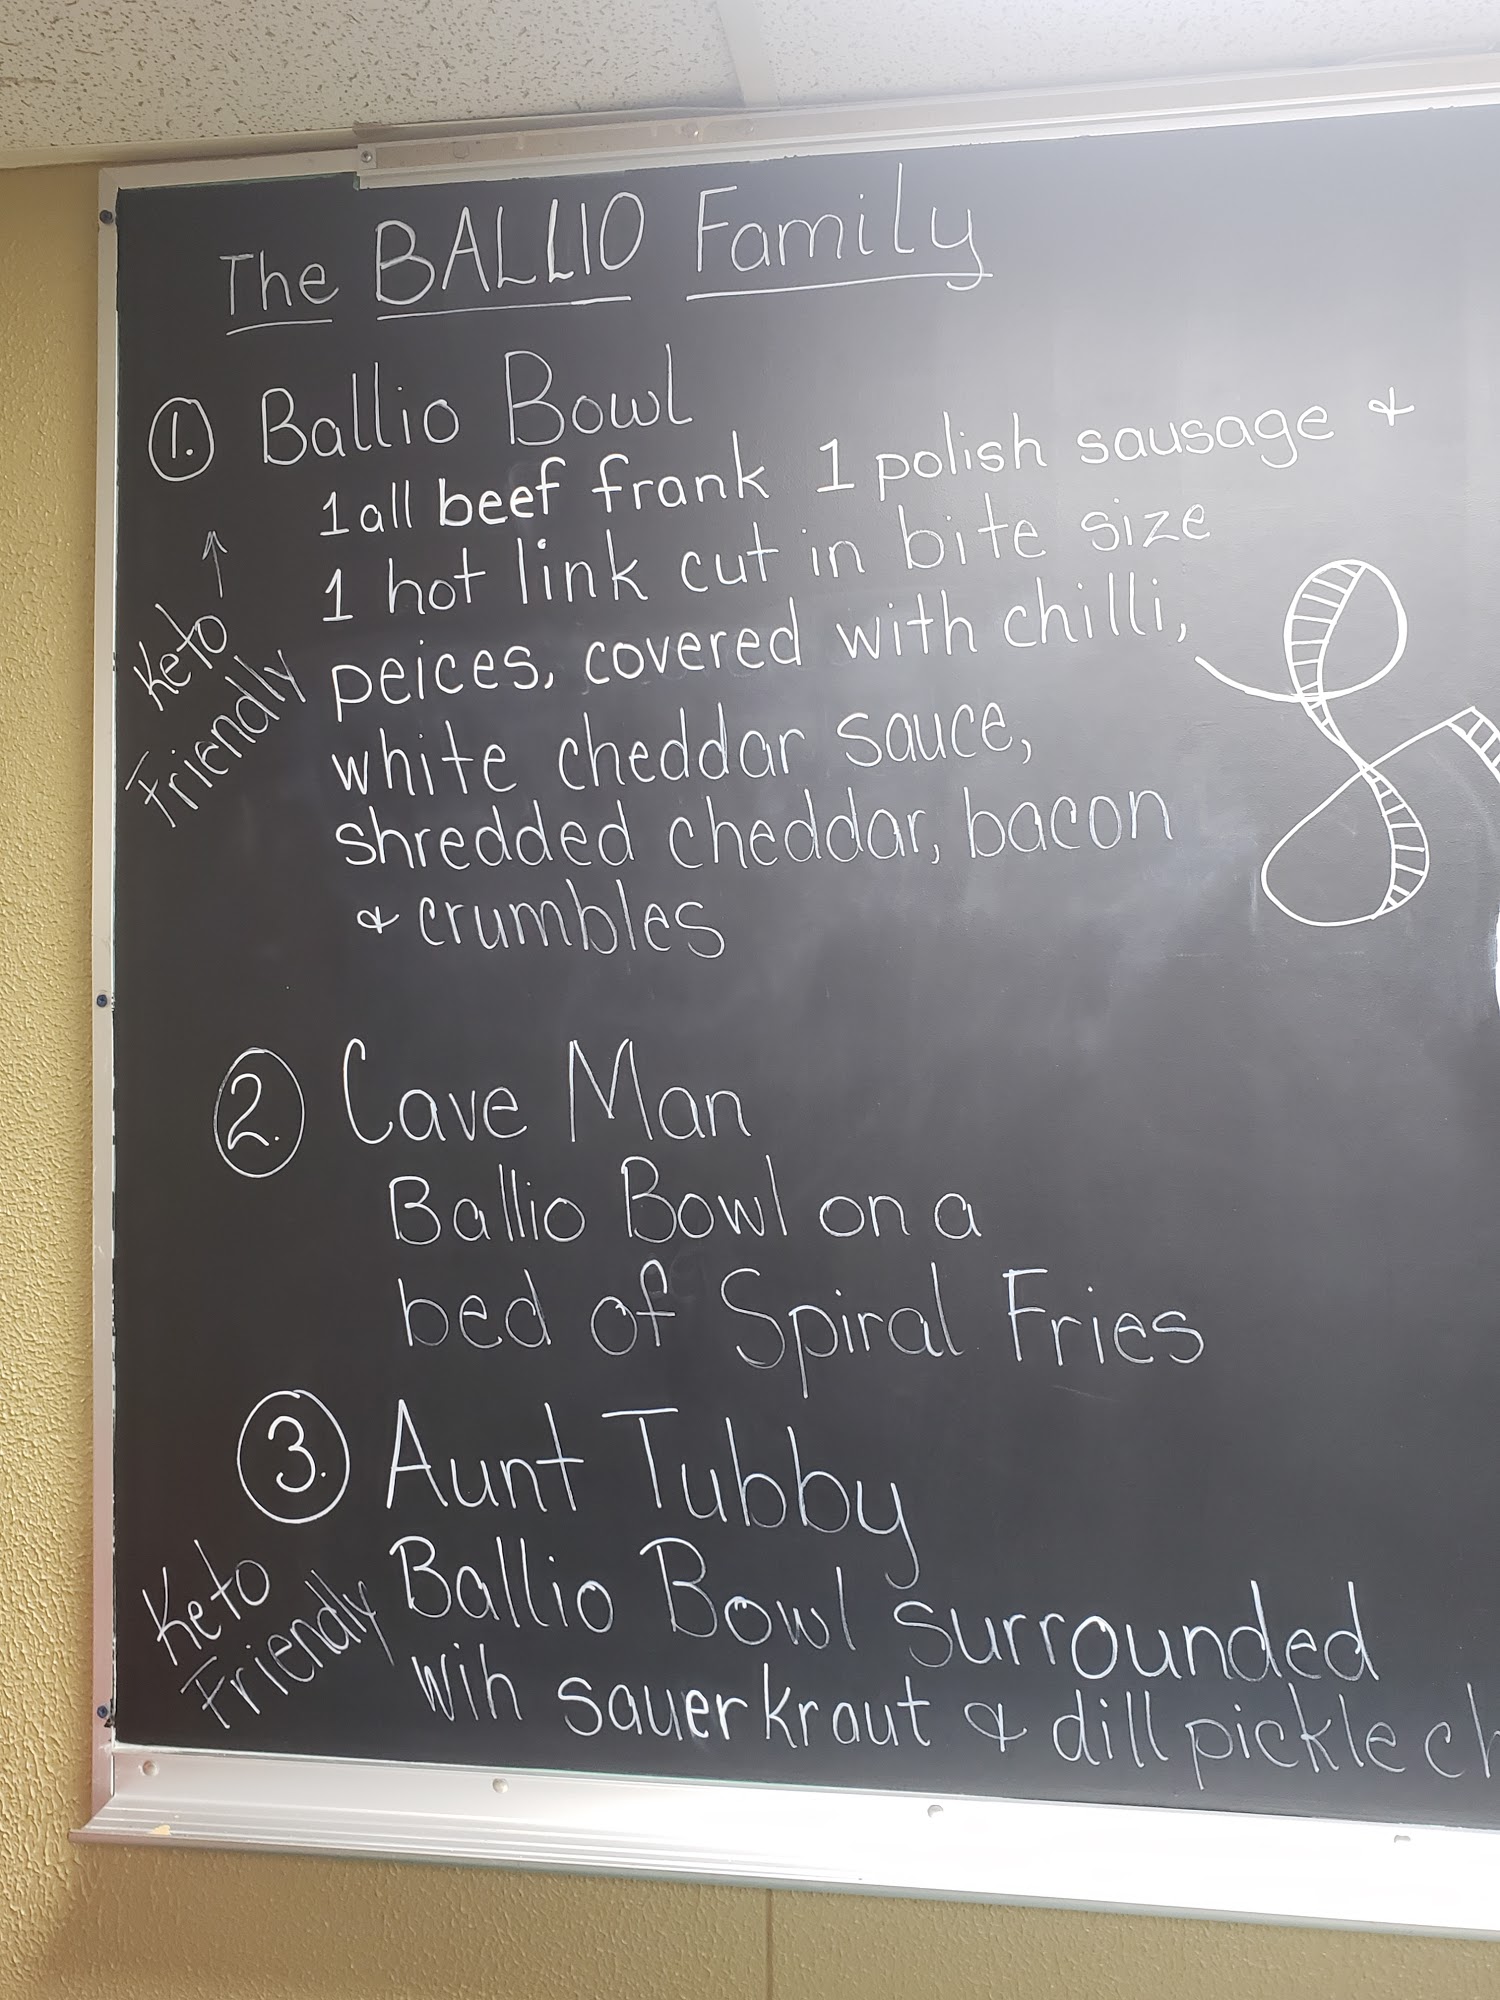 The BALLIO Family
1. Ballio Bowl
1 all beef frank 1 polish sausage &
1 hot link cut in bite size
peices, covered with chilli,
white cheddar sauce,
shredded cheddar, bacon
& crumbles
Keto
Friendly
2. Cave Man
Ballio Bowl on a
bed of Spiral Fries
3. Aunt Tubby
Ballio Bowl surrounded
wih sauerkraut & dill pickle ch
Keto
Friendly